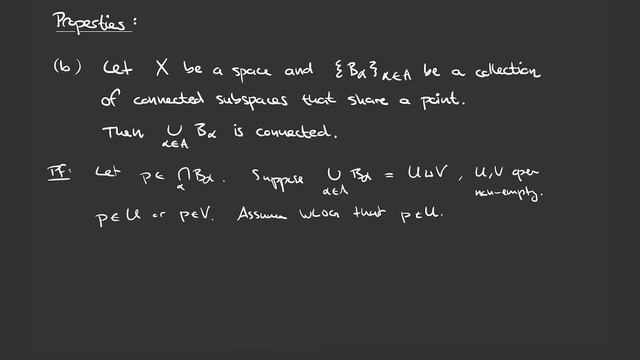 Properties:
(b) Let X be a space and {Bα}α∈A be a collection
of connected subspaces that share a point.
Then ∪α∈A Bα is connected.
Pf: Let p ∈ ∩α Bα. Suppose ∪α∈A Bα = U ⊔ V, U, V open
non-empty.
p ∈ U or p ∈ V. Assume WLOG that p ∈ U.